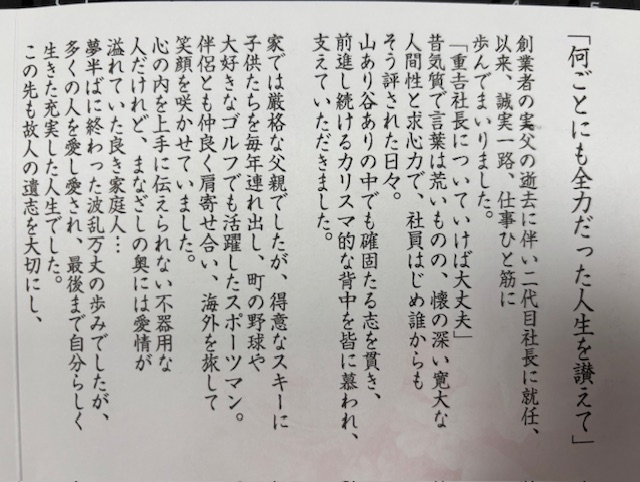 「何ごとにも全力だった人生を讃えて」
創業者の実父の逝去に伴い二代目社長に就任、
以来、誠実一路、仕事ひと筋に
歩んでまいりました。
「重𠮷社長についていけば大丈夫」
昔気質で言葉は荒いものの、懐の深い寛大な
人間性と求心力で、社員はじめ誰からも
そう評された日々。
山あり谷ありの中でも確固たる志を貫き、
前進し続けるカリスマ的な背中を皆に慕われ、
支えていただきました。
家では厳格な父親でしたが、得意なスキーに
子供たちを毎年連れ出し、町の野球や
大好きなゴルフでも活躍したスポーツマン。
伴侶とも仲良く肩寄せ合い、海外を旅して
笑顔を咲かせていました。
心の内を上手に伝えられない不器用な
人だけれど、まなざしの奥には愛情が
溢れていた良き家庭人…
夢半ばに終わった波乱万丈の歩みでしたが、
多くの人を愛し愛され、最後まで自分らしく
生きた充実した人生でした。
この先も故人の遺志を大切にし、